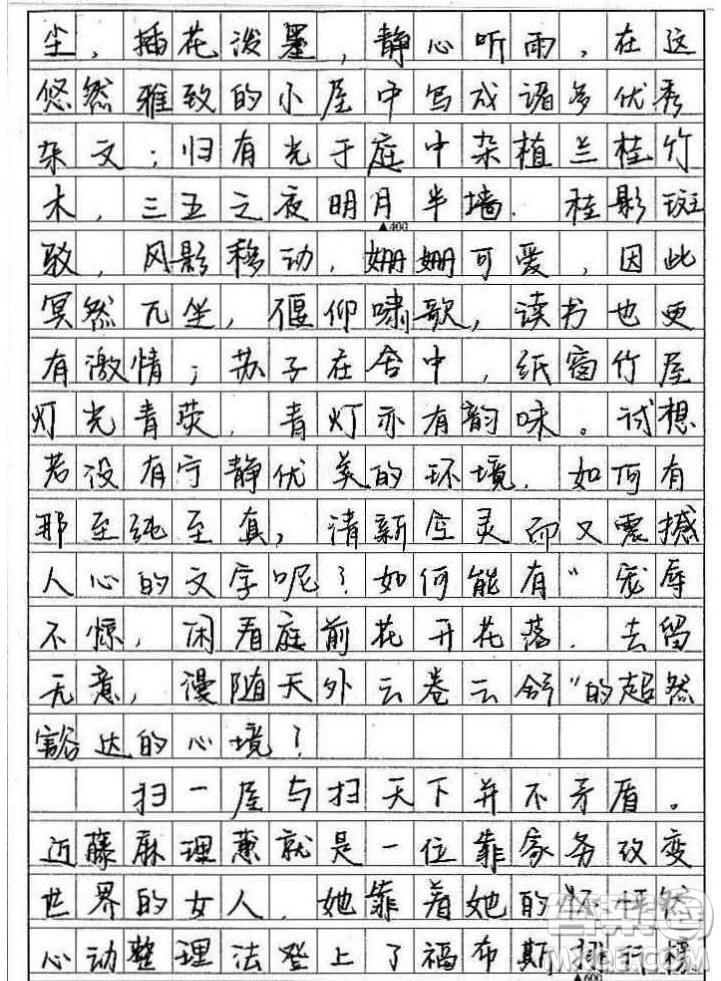 尘，插花泼墨，静心听雨，在这
悠然雅致的小屋中写成诸多优秀
杂文；归有光于庭中杂植兰桂竹
木，三五之夜明月半墙，桂影斑
▲400
驳，风影移动，姗姗可爱，因此
冥然兀坐，偃仰啸歌，读书也更
有激情；苏子在舍中，纸窗竹屋
灯光青荧，青灯亦有韵味。试想
若没有宁静优美的环境，如何有
那至纯至真，清新空灵而又震撼
人心的文字呢？如何能有“宠辱
不惊，闲看庭前花开花落，去留
无意，漫随天外云卷云舒”的超然
豁达的心境？
扫一屋与扫天下并不矛盾。
近藤麻理蕙就是一位靠家务改变
世界的女人，她靠着她的怦然
心动整理法登上了福布斯排行榜
▲600